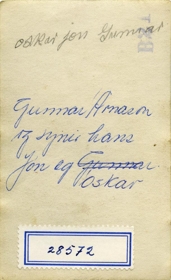 oskar jón Gunnar
Gunnar Árnason
og synir hans
Jón og Gunnar
oskar
28572